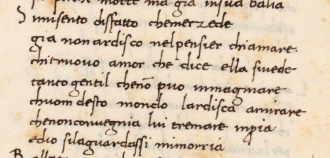 mi sento disfatto che merzede
gia non ardisco nel pensier chiamare.
chi truovo amor che dice ella si vede
tanto gentil che nō puo inmaginare
chuom desto mondo lardisca amirare
che non convegnia lui tremare inpria
edio silaguardassi nimorria